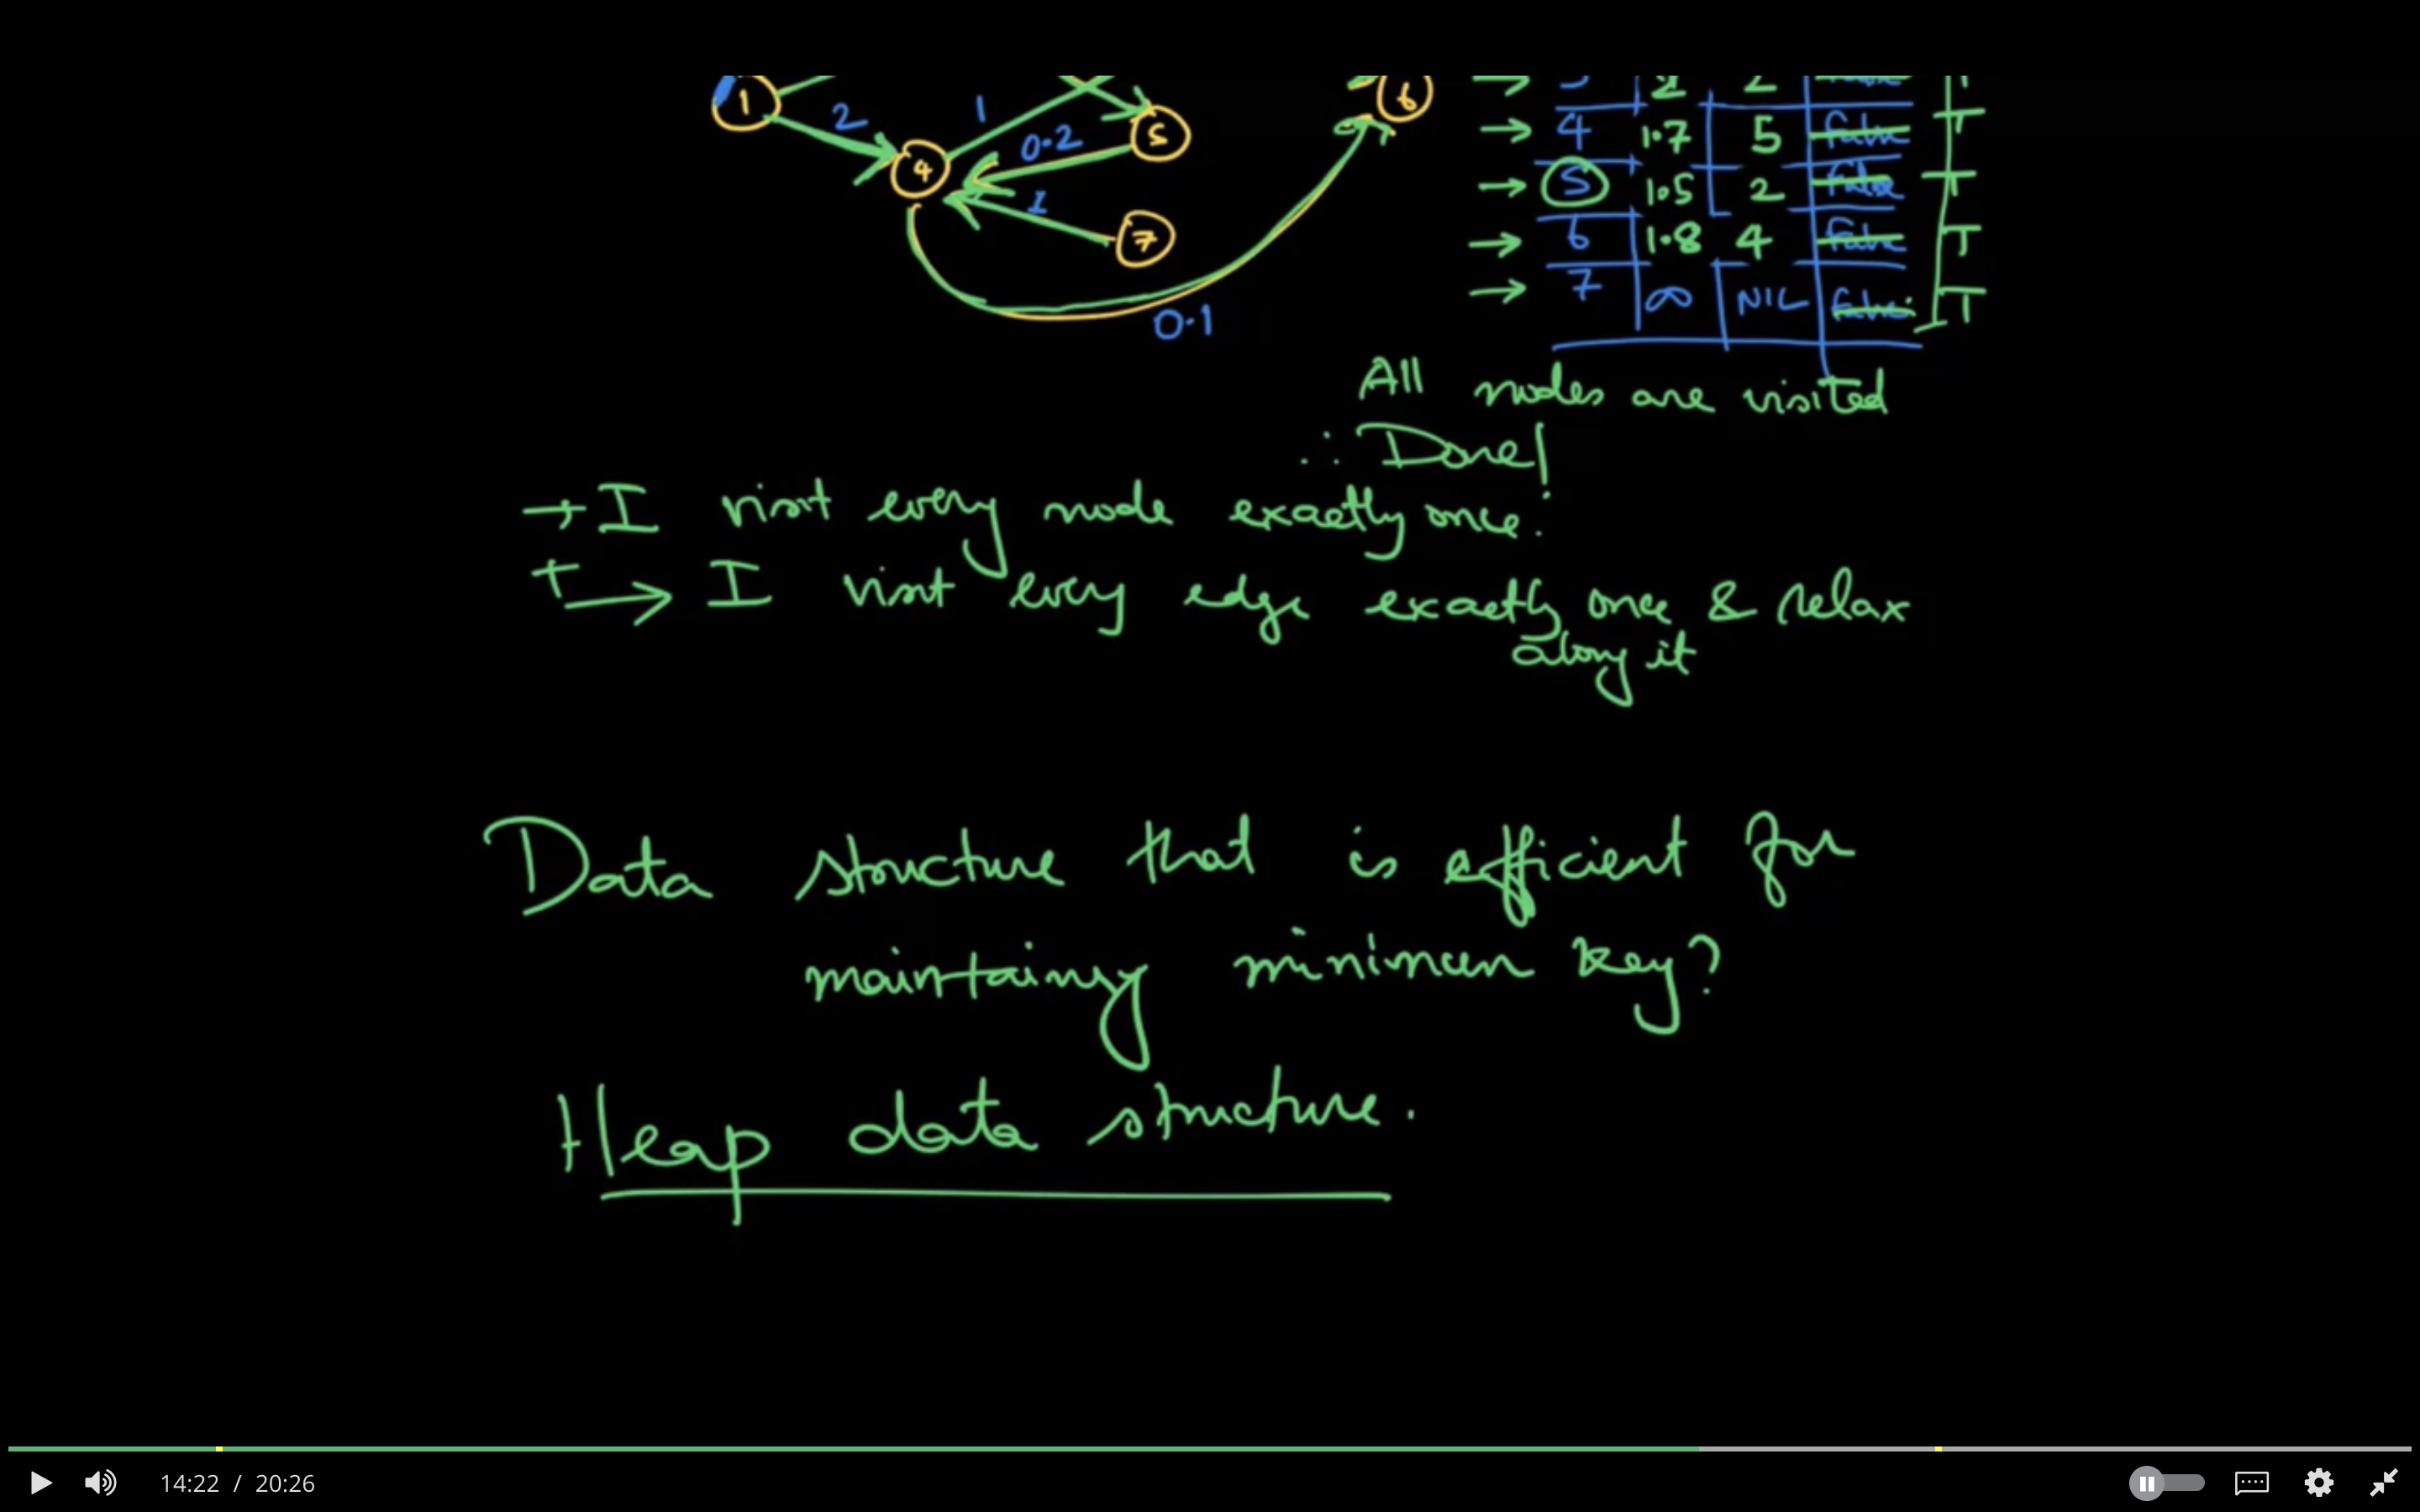 1 2 4 1 0.2 5 6
1 7
0.1
4 1.7 5 False T
5 1.5 2 False T
6 1.8 4 False T
7 ∞ NIL False T
All nodes are visited
∴ Done!
→ I visit every node exactly once!
→ I visit every edge exactly once & relax
along it
Data structure that is efficient for
maintaing minimum key?
Heap data structure.
14:22 / 20:26